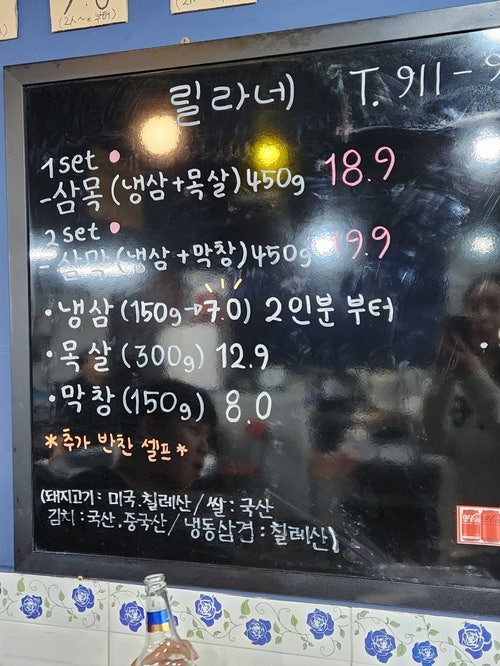 (2人~부터)
릴라네 T. 911-9
1set
-삼목 (냉삼+목살) 450g 18.9
2set
-삼막 (냉삼+막창) 450g 19.9
·냉삼 (150g→7.0) 2인분 부터
·목살 (300g) 12.9
·막창 (150g) 8.0
*추가 반찬 셀프*
(돼지고기 : 미국.칠레산 / 쌀 : 국산
김치 : 국산.중국산 / 냉동삼겹 : 칠레산)